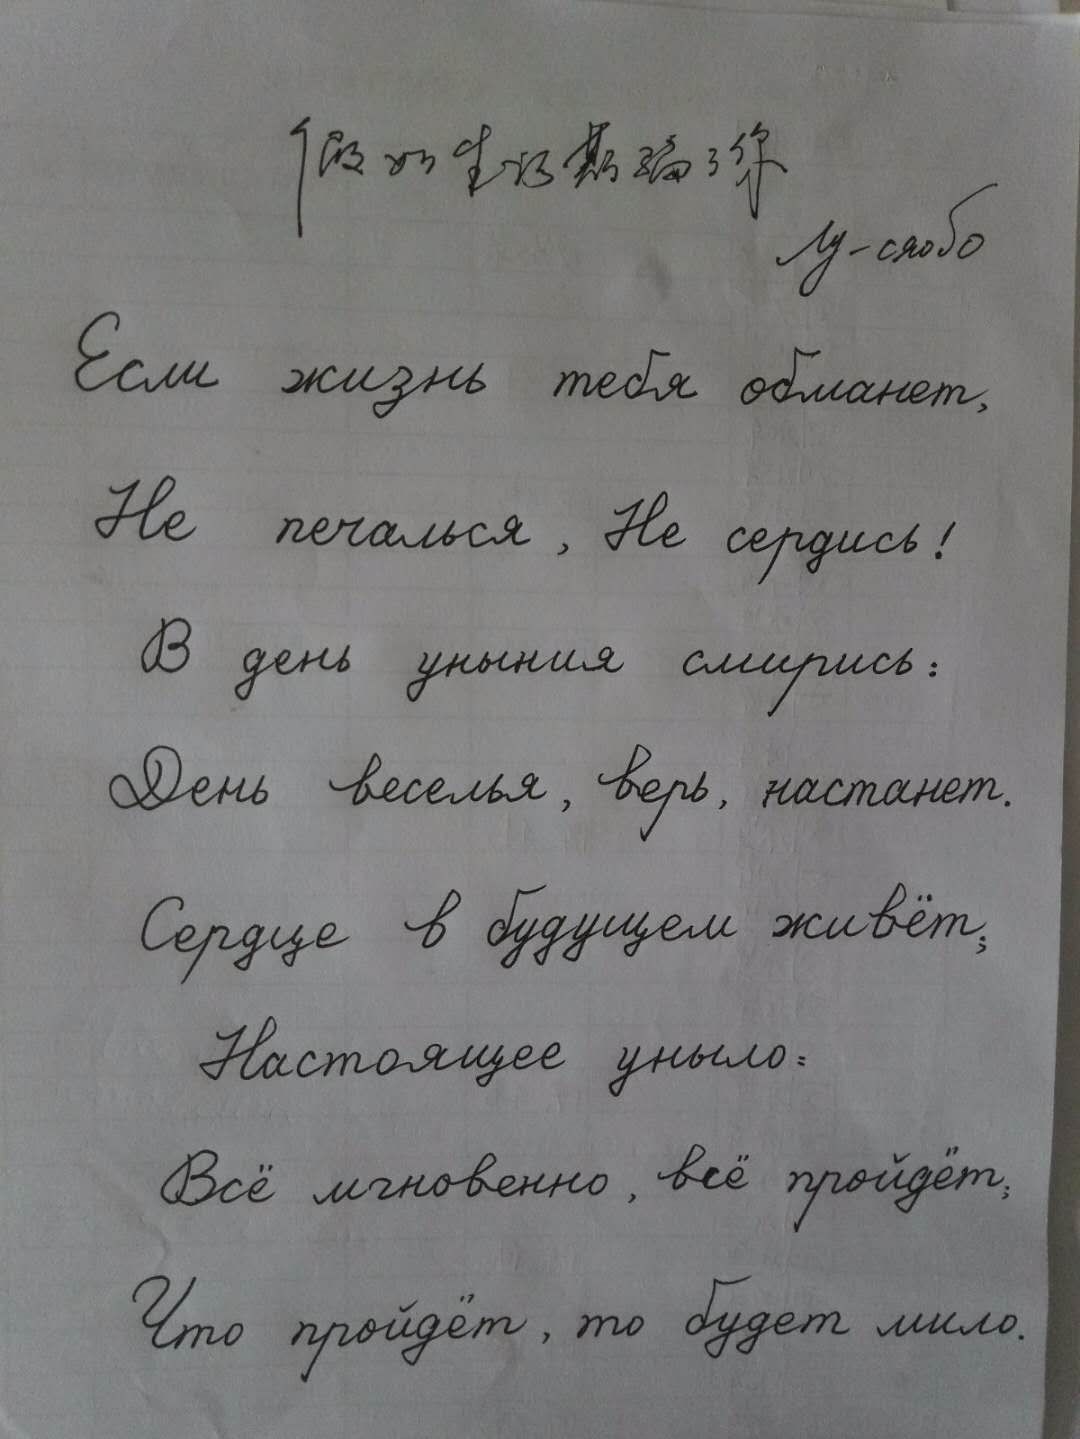 假如生活欺骗了你
Лу-сяобо
Если жизнь тебя обманет,
Не печалься, Не сердись!
В день уныния смирись:
День веселья, верь, настанет.
Сердце в будущем живёт;
Настоящее уныло:
Всё мгновенно, всё пройдёт;
Что пройдёт, то будет мило.